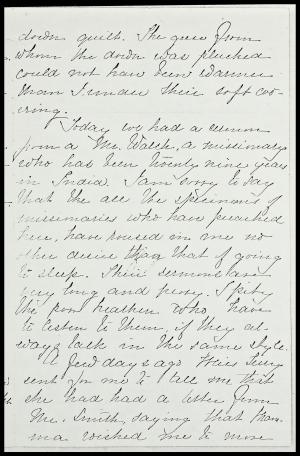 down quilt. The geese from
whom the down was plucked
could not have been warmer
than I under their soft cov-
ering.
Today we had a sermon
from a Mr. Walsh, a missionary
who has been twenty nine years
in India. I am sorry to say
that the all the specimens of
missionaries who have preached
here, have roused in me no
other desire than that of going
to sleep. Their sermons are
very long and prosy. I pity
the poor heathen who have
to listen to them, if they al-
ways talk in the same style.
A few days ago Miss
sent for me to tell me that
she had had a letter from
Mr. Smith, saying that Mam-
ma wished me to more